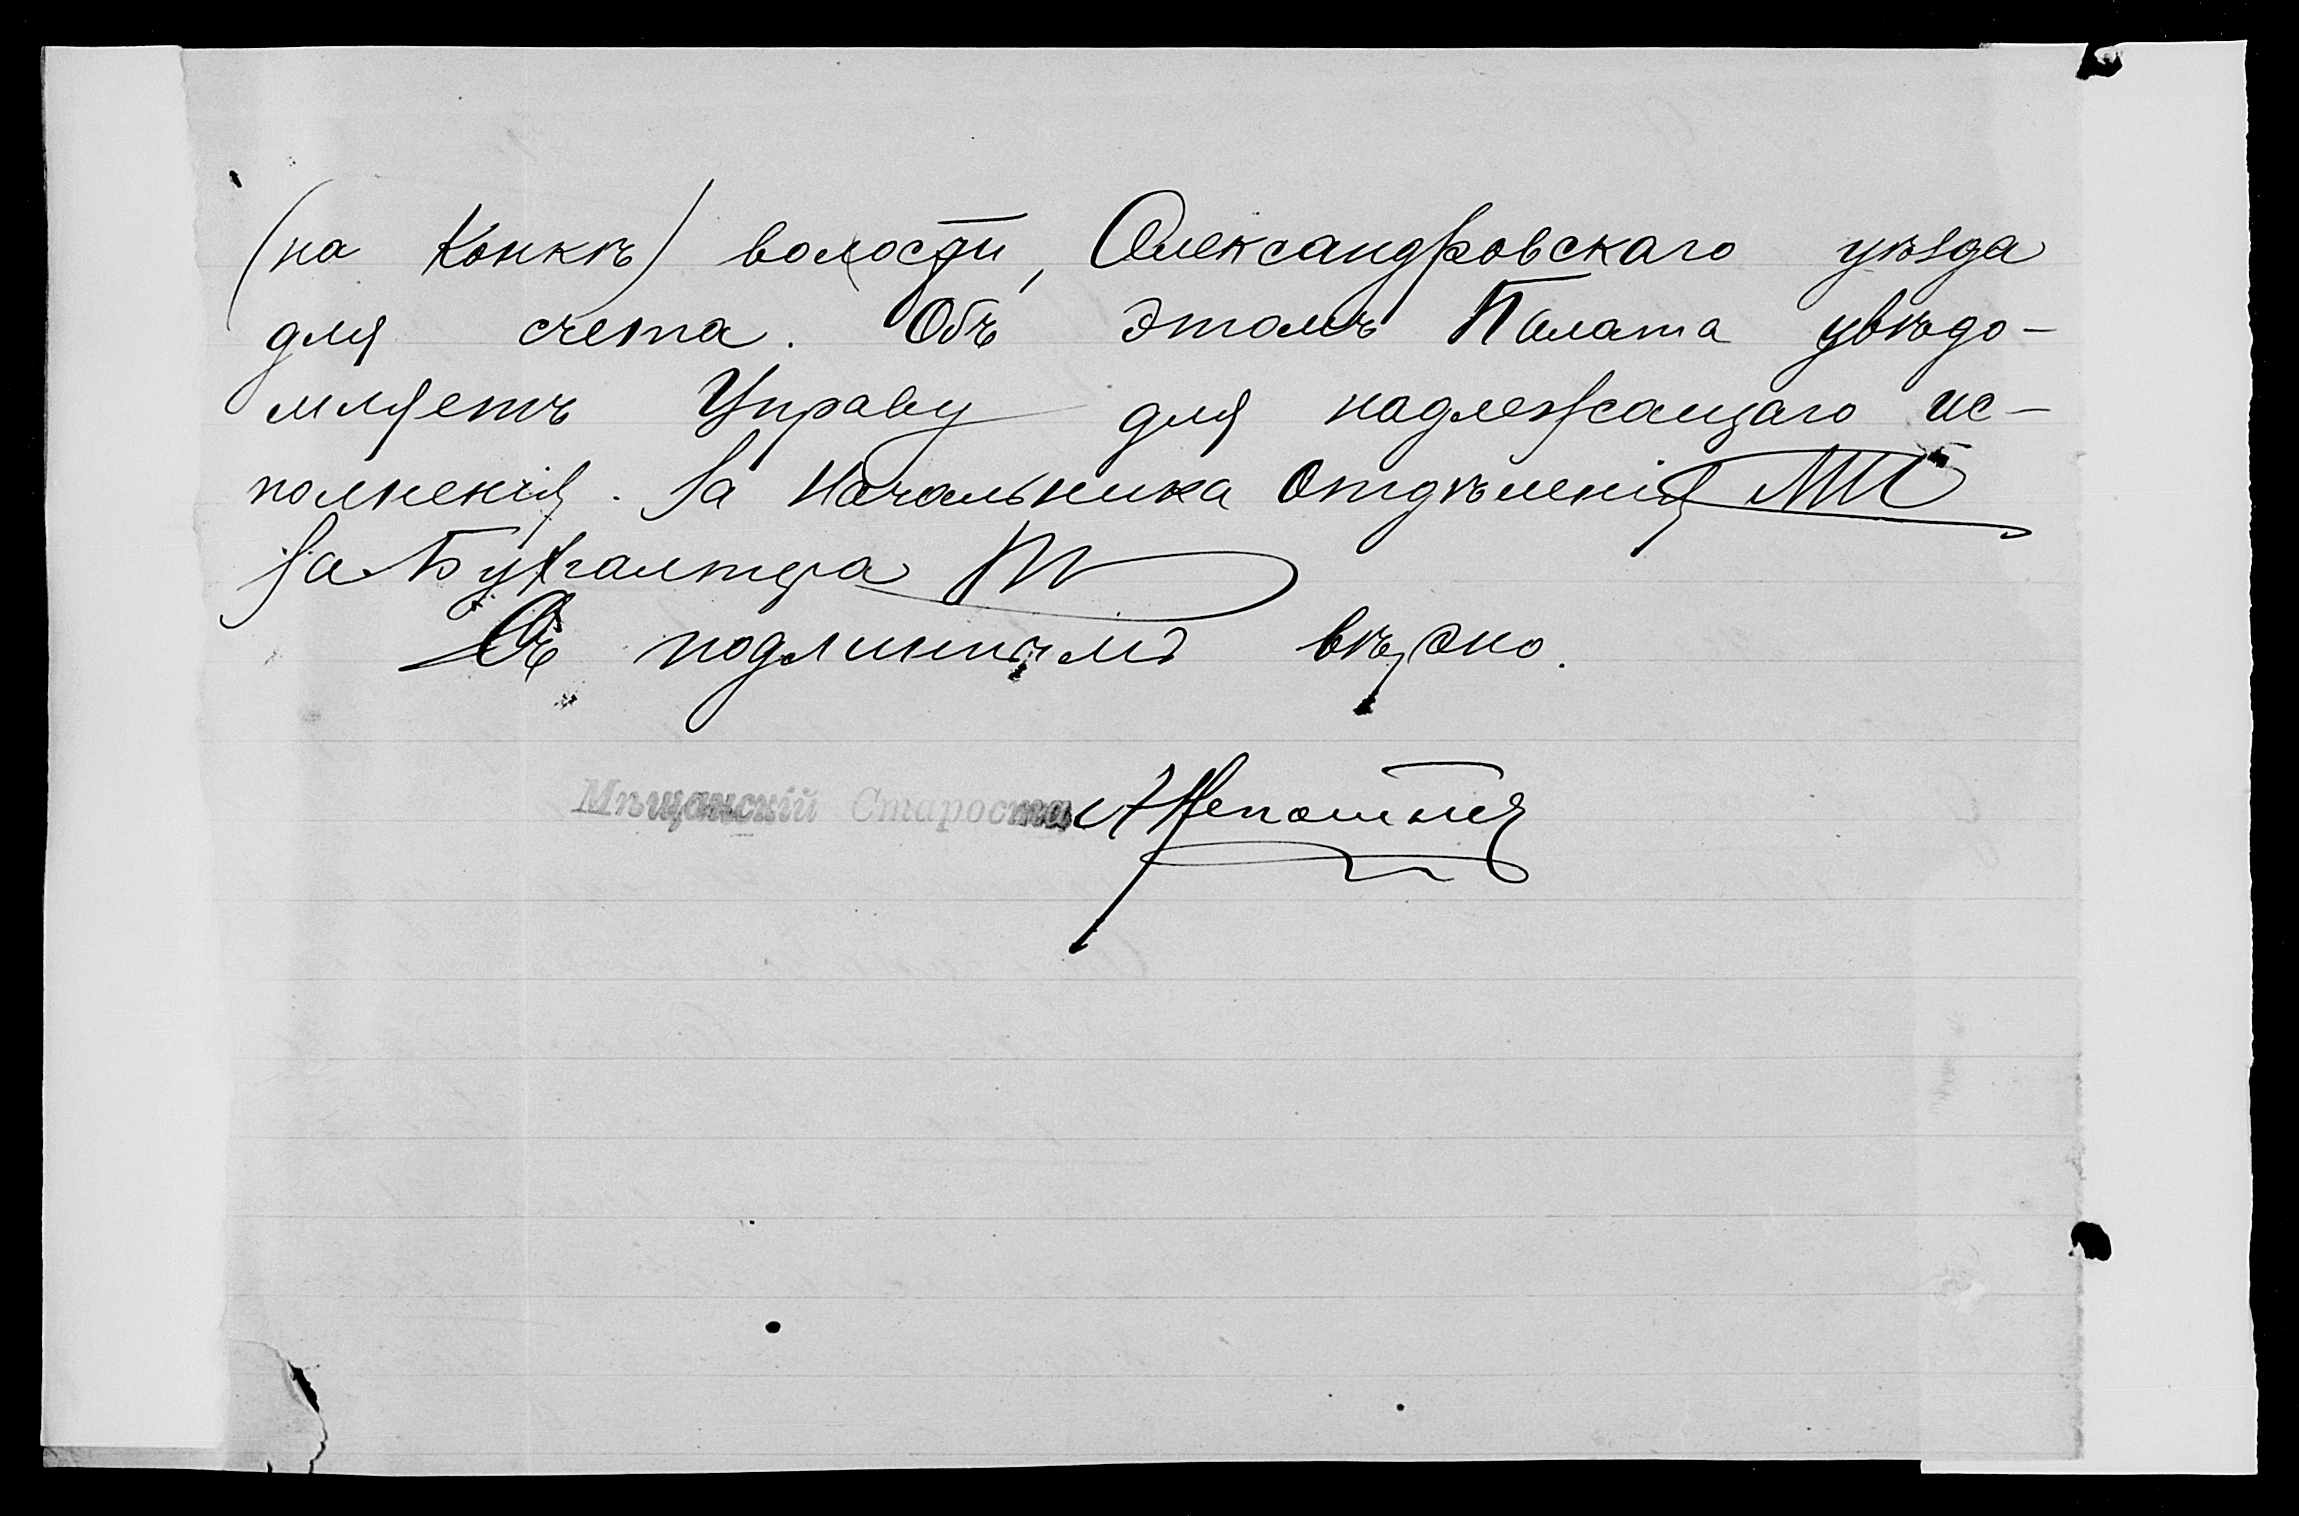 (на Конкѣ) волости, Александровскаго уѣзда
для счета. Объ этомъ Палата увѣдо-
мляетъ Управу для надлежащаго ис-
полненія. За Начальника Отдѣленія
За Бухгалтера
Съ подлиннымъ вѣрно.
Мѣщанскій Староста